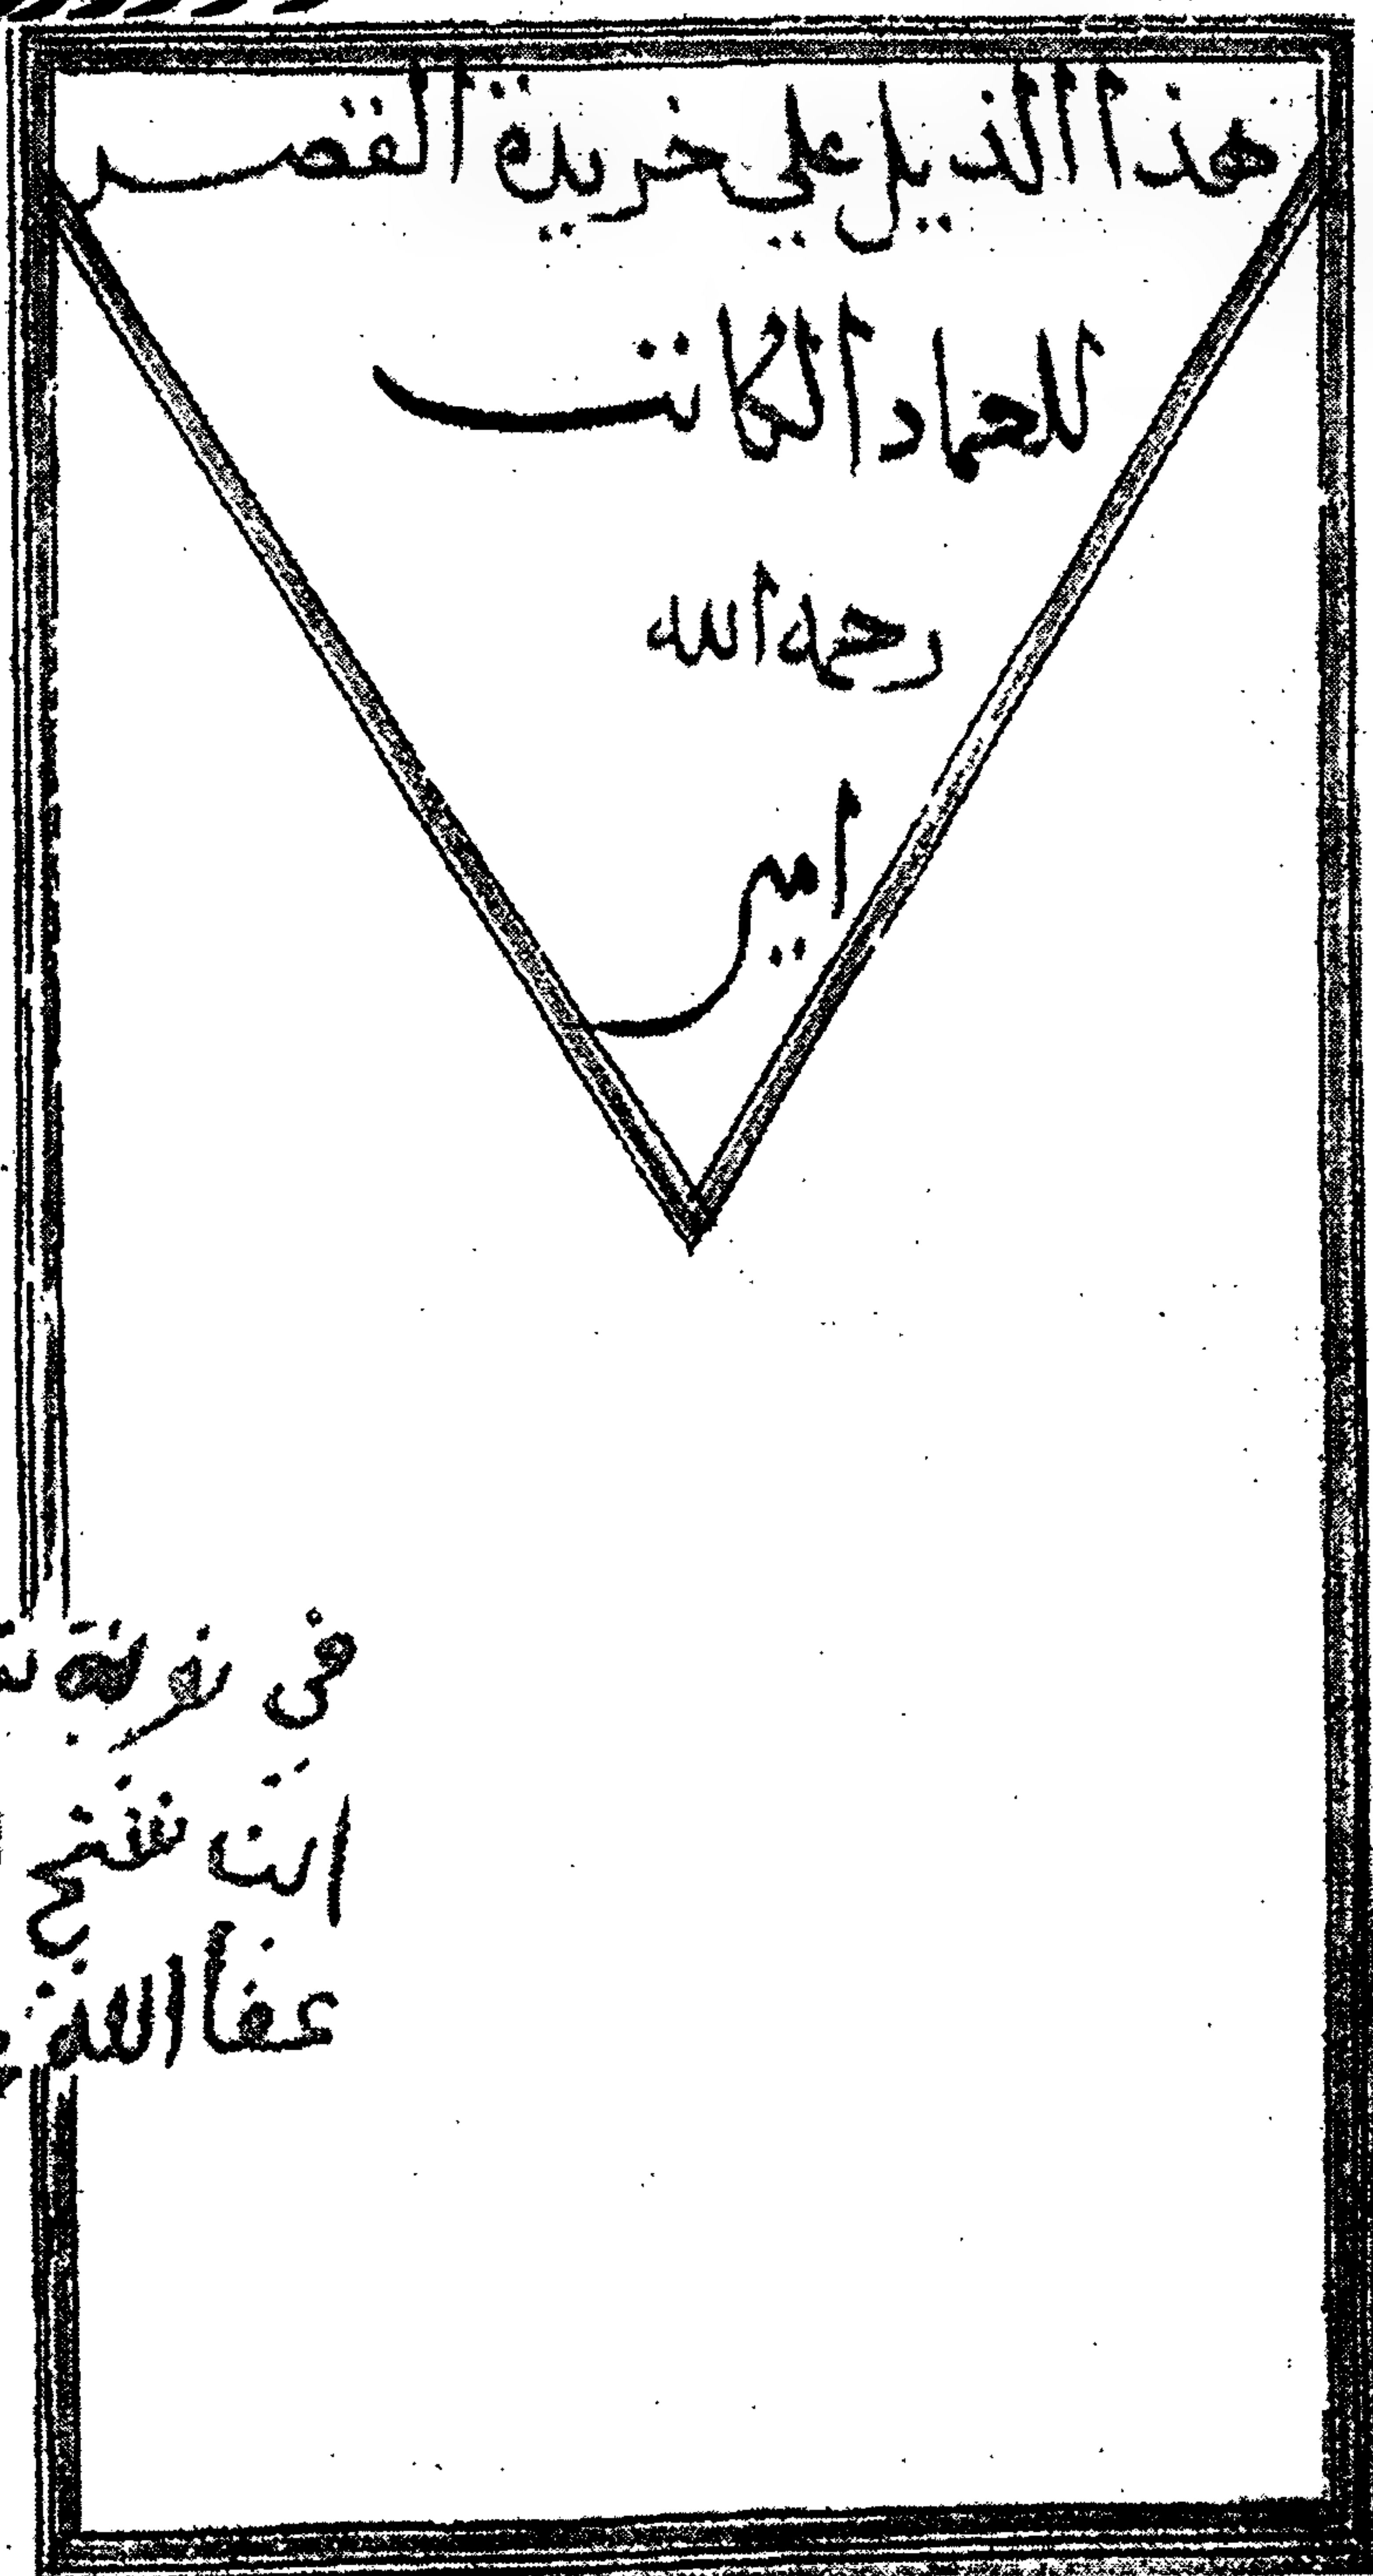 هذا الذيل علي خريدة القصر
للعماد الكاتب
رحمه الله
امير
في نوبة
عفا الله